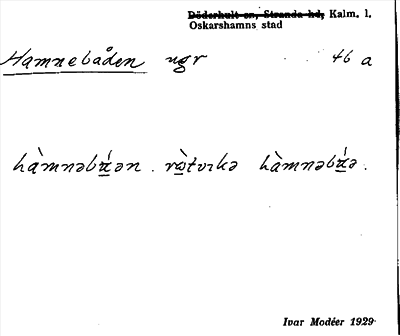 Döderhult sn, Stranda hd, Kalm. l.
Oskarshamns stad
Hamnebåden ngr 46 a
hàmnəbä́ən . ròtvıkə hàmnəbä́ə .
Ivar Modéer 1929